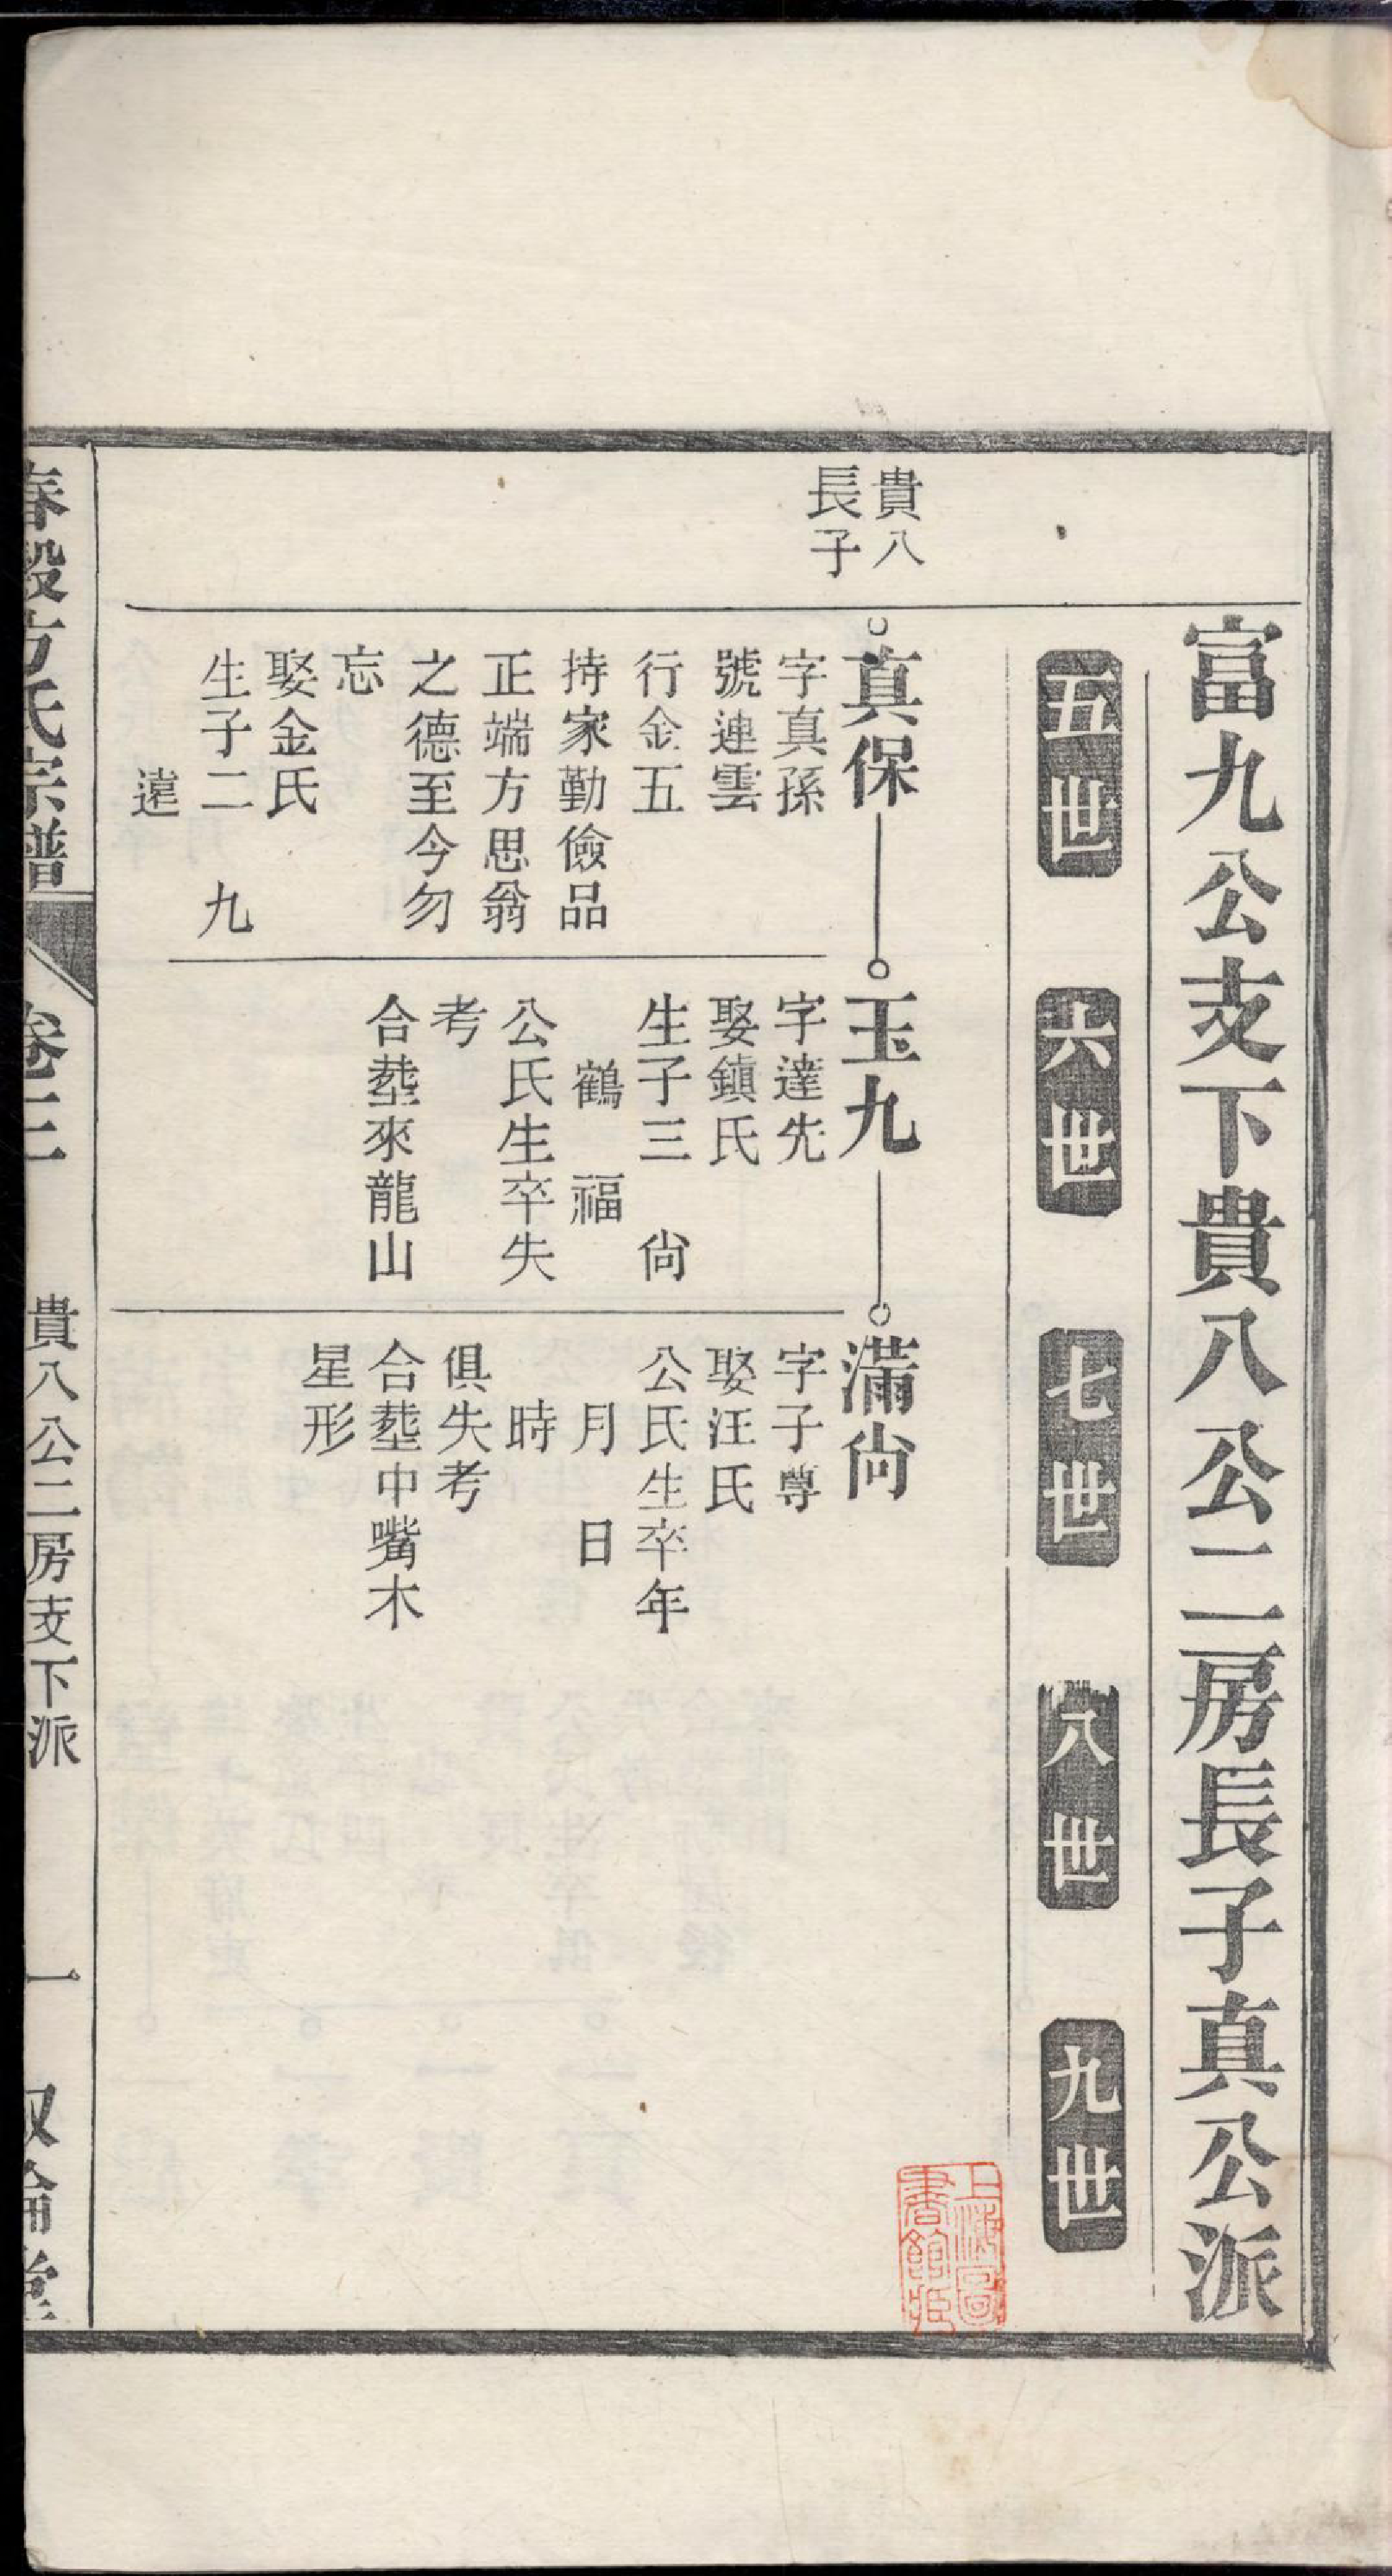 富九公支下貴八公二房長子真公派
五世
六世
七世
八世
九世
貴八
長子
真保
字真孫
號連雲
行金五
持家勤儉品
正端方思翁
之德至今勿
忘
娶金氏
生子二 九
遠
玉九
字達先
娶鎮氏
生子三 尙
鶴 福
公氏生卒失
考
合塟來龍山
滿尙
字子尊
娶汪氏
公氏生卒年
月 日
時
俱失考
合塟中嘴木
星形
春穀方氏宗譜
卷三
貴八公二房支下派
一
叙倫堂
上海圖
書館藏